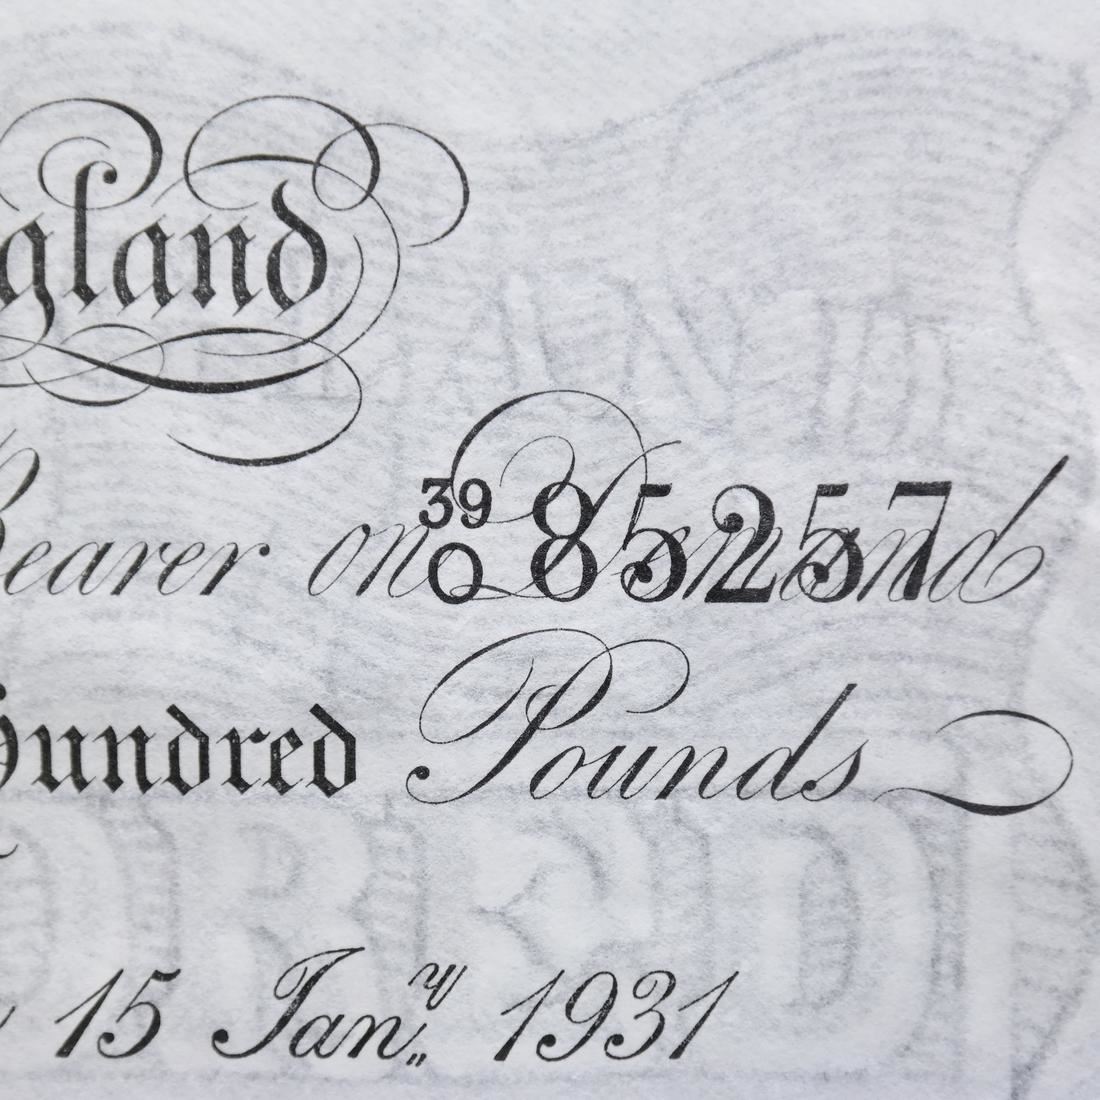 gland
Bearer on Demand
39
O 85257
Hundred Pounds
15 Janry 1931